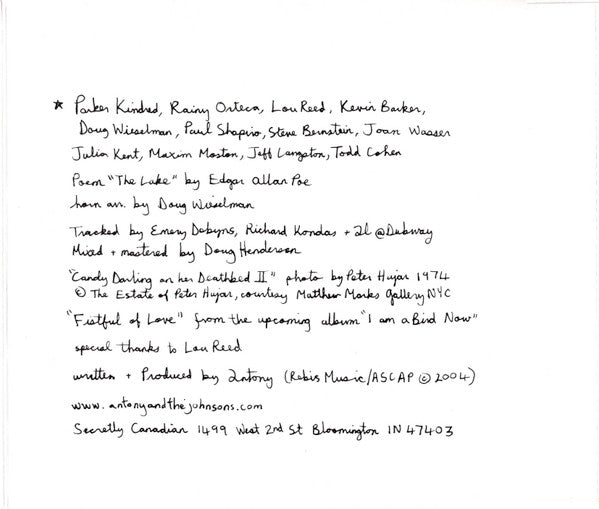 ★ Parker Kindred, Rainy Orteca, Lou Reed, Kevin Barker,
Doug Wieselman, Paul Shapiro, Steve Bernstein, Joan Wasser
Julia Kent, Maxim Moston, Jeff Langston, Todd Cohen
Poem "The Lake" by Edgar Allan Poe
horn arr. by Doug Wieselman
Tracked by Emery Dobyns, Richard Kondas + al @Dubway
Mixed + mastered by Doug Henderson
"Candy Darling on her Deathbed II" photo by Peter Hujar 1974
© The Estate of Peter Hujar, courtesy Matthew Marks gallery NYC
"Fistful of Love" from the upcoming album "I am a Bird Now"
special thanks to Lou Reed
written + Produced by Antony (Rebis Music/ASCAP © 2004)
www.antonyandthejohnsons.com
Secretly Canadian 1499 West 2nd St Bloomington IN 47403